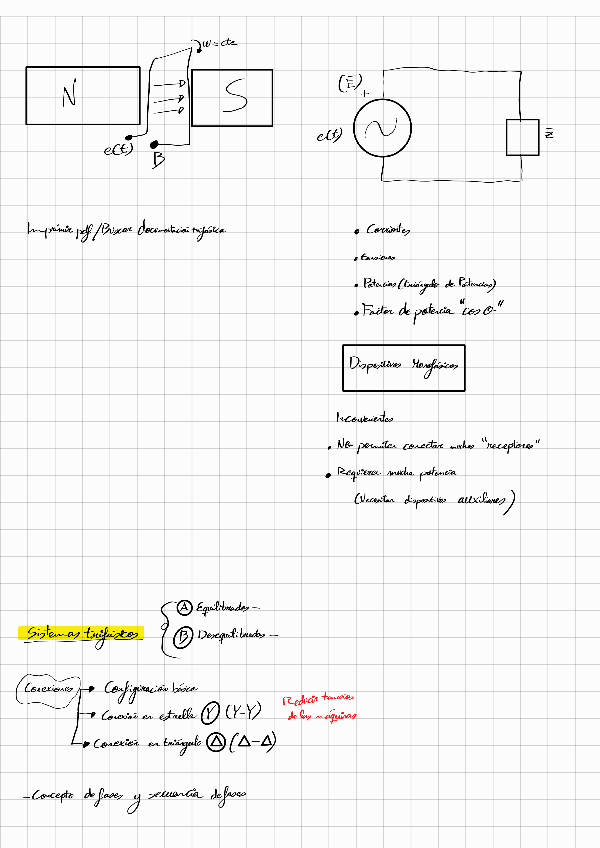 w = cte
N
S
e(t)
B
(Ē)
+
e(t)
Z̄
Imprimir pdf/Buscar documentación trifásica
• Corrientes
• tensiones
• Potencias (triángulo de Potencias)
• Factor de potencia "cos θ"
Dispositivos Monofásicos
Inconvenientes
• No permiten conectar muchos "receptores"
• Requieren mucha potencia
(Necesitan dispositivos auxiliares)
Sistemas trifásicos
A Equilibrados -
B Desequilibrados -
Conexiones
Configuración básica
Conexión en estrella Y (Y-Y)
Conexión en triángulo Δ (Δ-Δ)
Reducir
de las máquinas
- Concepto de fases y secuencia de fases